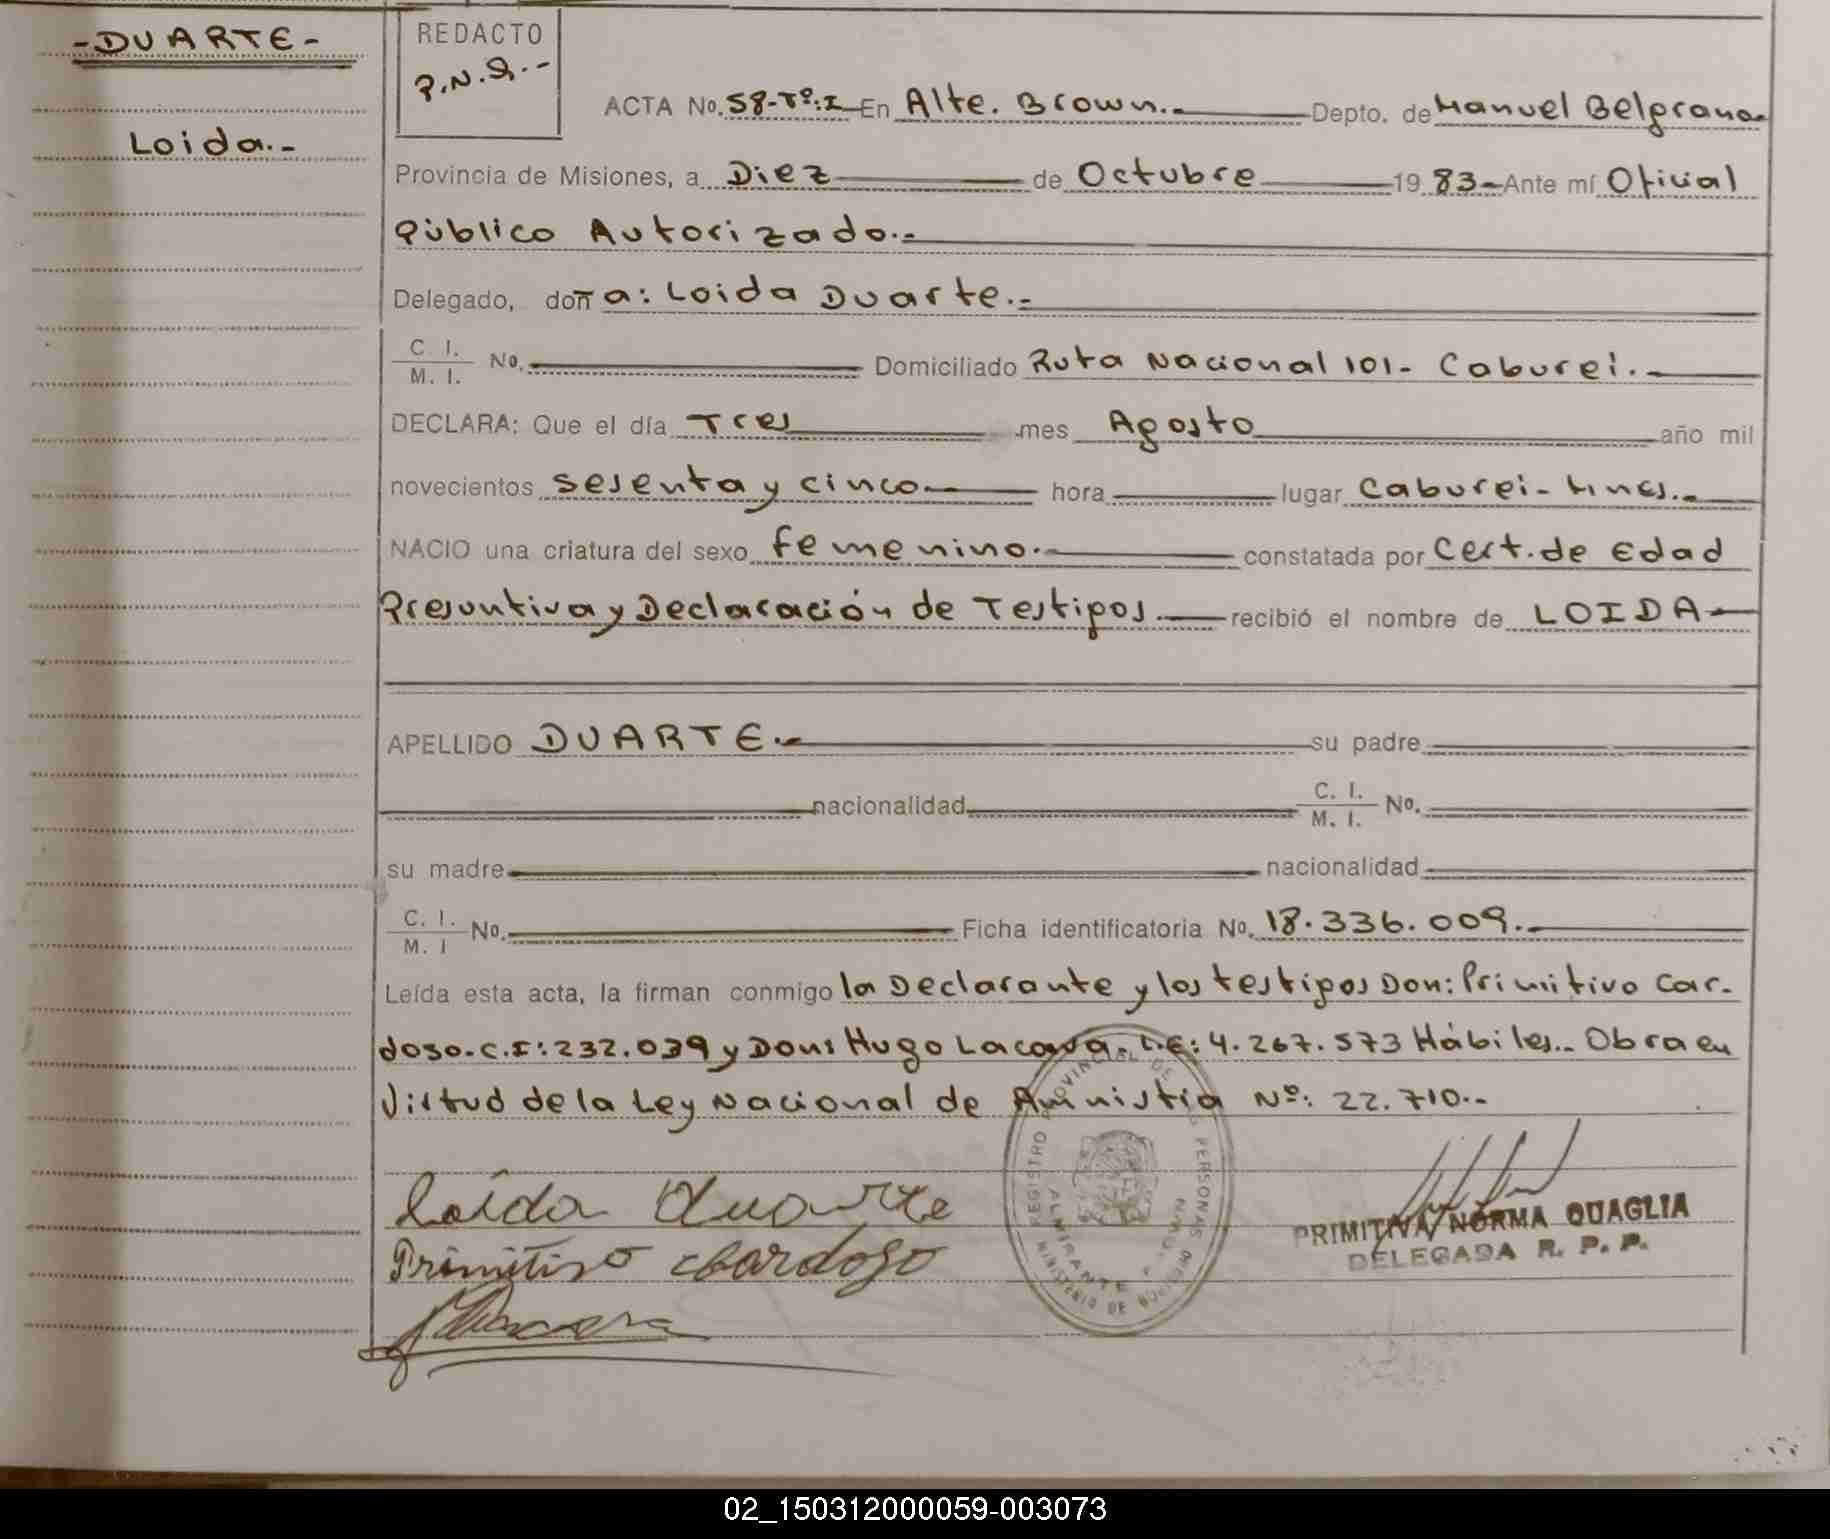 -DUARTE-
Loida.-
REDACTO
P.N.Q.--
ACTA No. 58-Tº:I En Alte. Brown.- Depto. de Manuel Belgrano
Provincia de Misiones, a Diez de Octubre 19 83- Ante mí Oficial
Público Autorizado.-
Delegado, doña: Loida Duarte.-
C. I. / M. I. No. Domiciliado Ruta Nacional 101- Caburei.-
DECLARA: Que el día Tres mes Agosto año mil
novecientos sesenta y cinco hora lugar Caburei- Mnes.-
NACIO una criatura del sexo femenino.- constatada por Cert. de Edad
Presuntiva y Declaración de Testigos.- recibió el nombre de LOIDA-
APELLIDO DUARTE.- su padre
nacionalidad C. I. / M. I. No.
su madre nacionalidad
C. I. / M. I No. Ficha identificatoria No. 18.336.009.-
Leída esta acta, la firman conmigo la Declarante y los testigos Don: Primitivo Car-
doso.C.I:232.039 y Don: Hugo Lacava.L.E:4.267.573 Hábiles.- Obra en
Virtud de la Ley Nacional de Amnistia Nº: 22.710.-
REGISTRO PROVINCIAL DE LAS PERSONAS
ALMIRANTE BROWN
MINISTERIO DE GOBIERNO
Loida Duarte
Primitivo Cardoso
PRIMITIVA NORMA QUAGLIA
DELEGADA R. P. P.
02_150312000059-003073